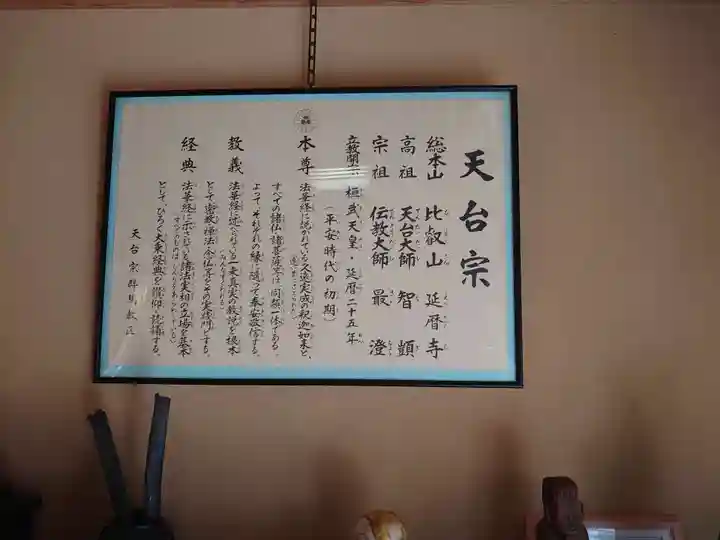 天台宗
総本山 比叡山 延暦寺
高祖 天台大師 智顗
宗祖 伝教大師 最澄
立教開宗 桓武天皇・延暦二十五年
(平安時代の初期)
本尊 法華経に説かれている久遠実成の釈迦如来と、
すべての諸仏諸菩薩等は同類一体である。
よって、それぞれの縁に随って奉安敬信する。
教義 法華経に述べられている一乗真実の教説を根本
として密教・禅法・念仏等をその実践門とする。
経典 法華経に示されている諸法実相の立場を基本
として、ひろく大乗経典を讃仰・読誦する。
天台宗群馬教区